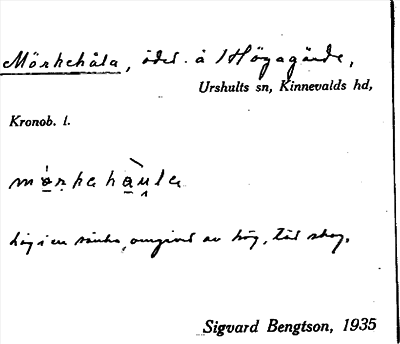 Mörkehåla, ödet. å Högagärde,
Urshults sn, Kinnevalds hd,
Kronob. l.
Låg i en sänka, omgivet av hög, tät skog.
Sigvard Bengtson, 1935